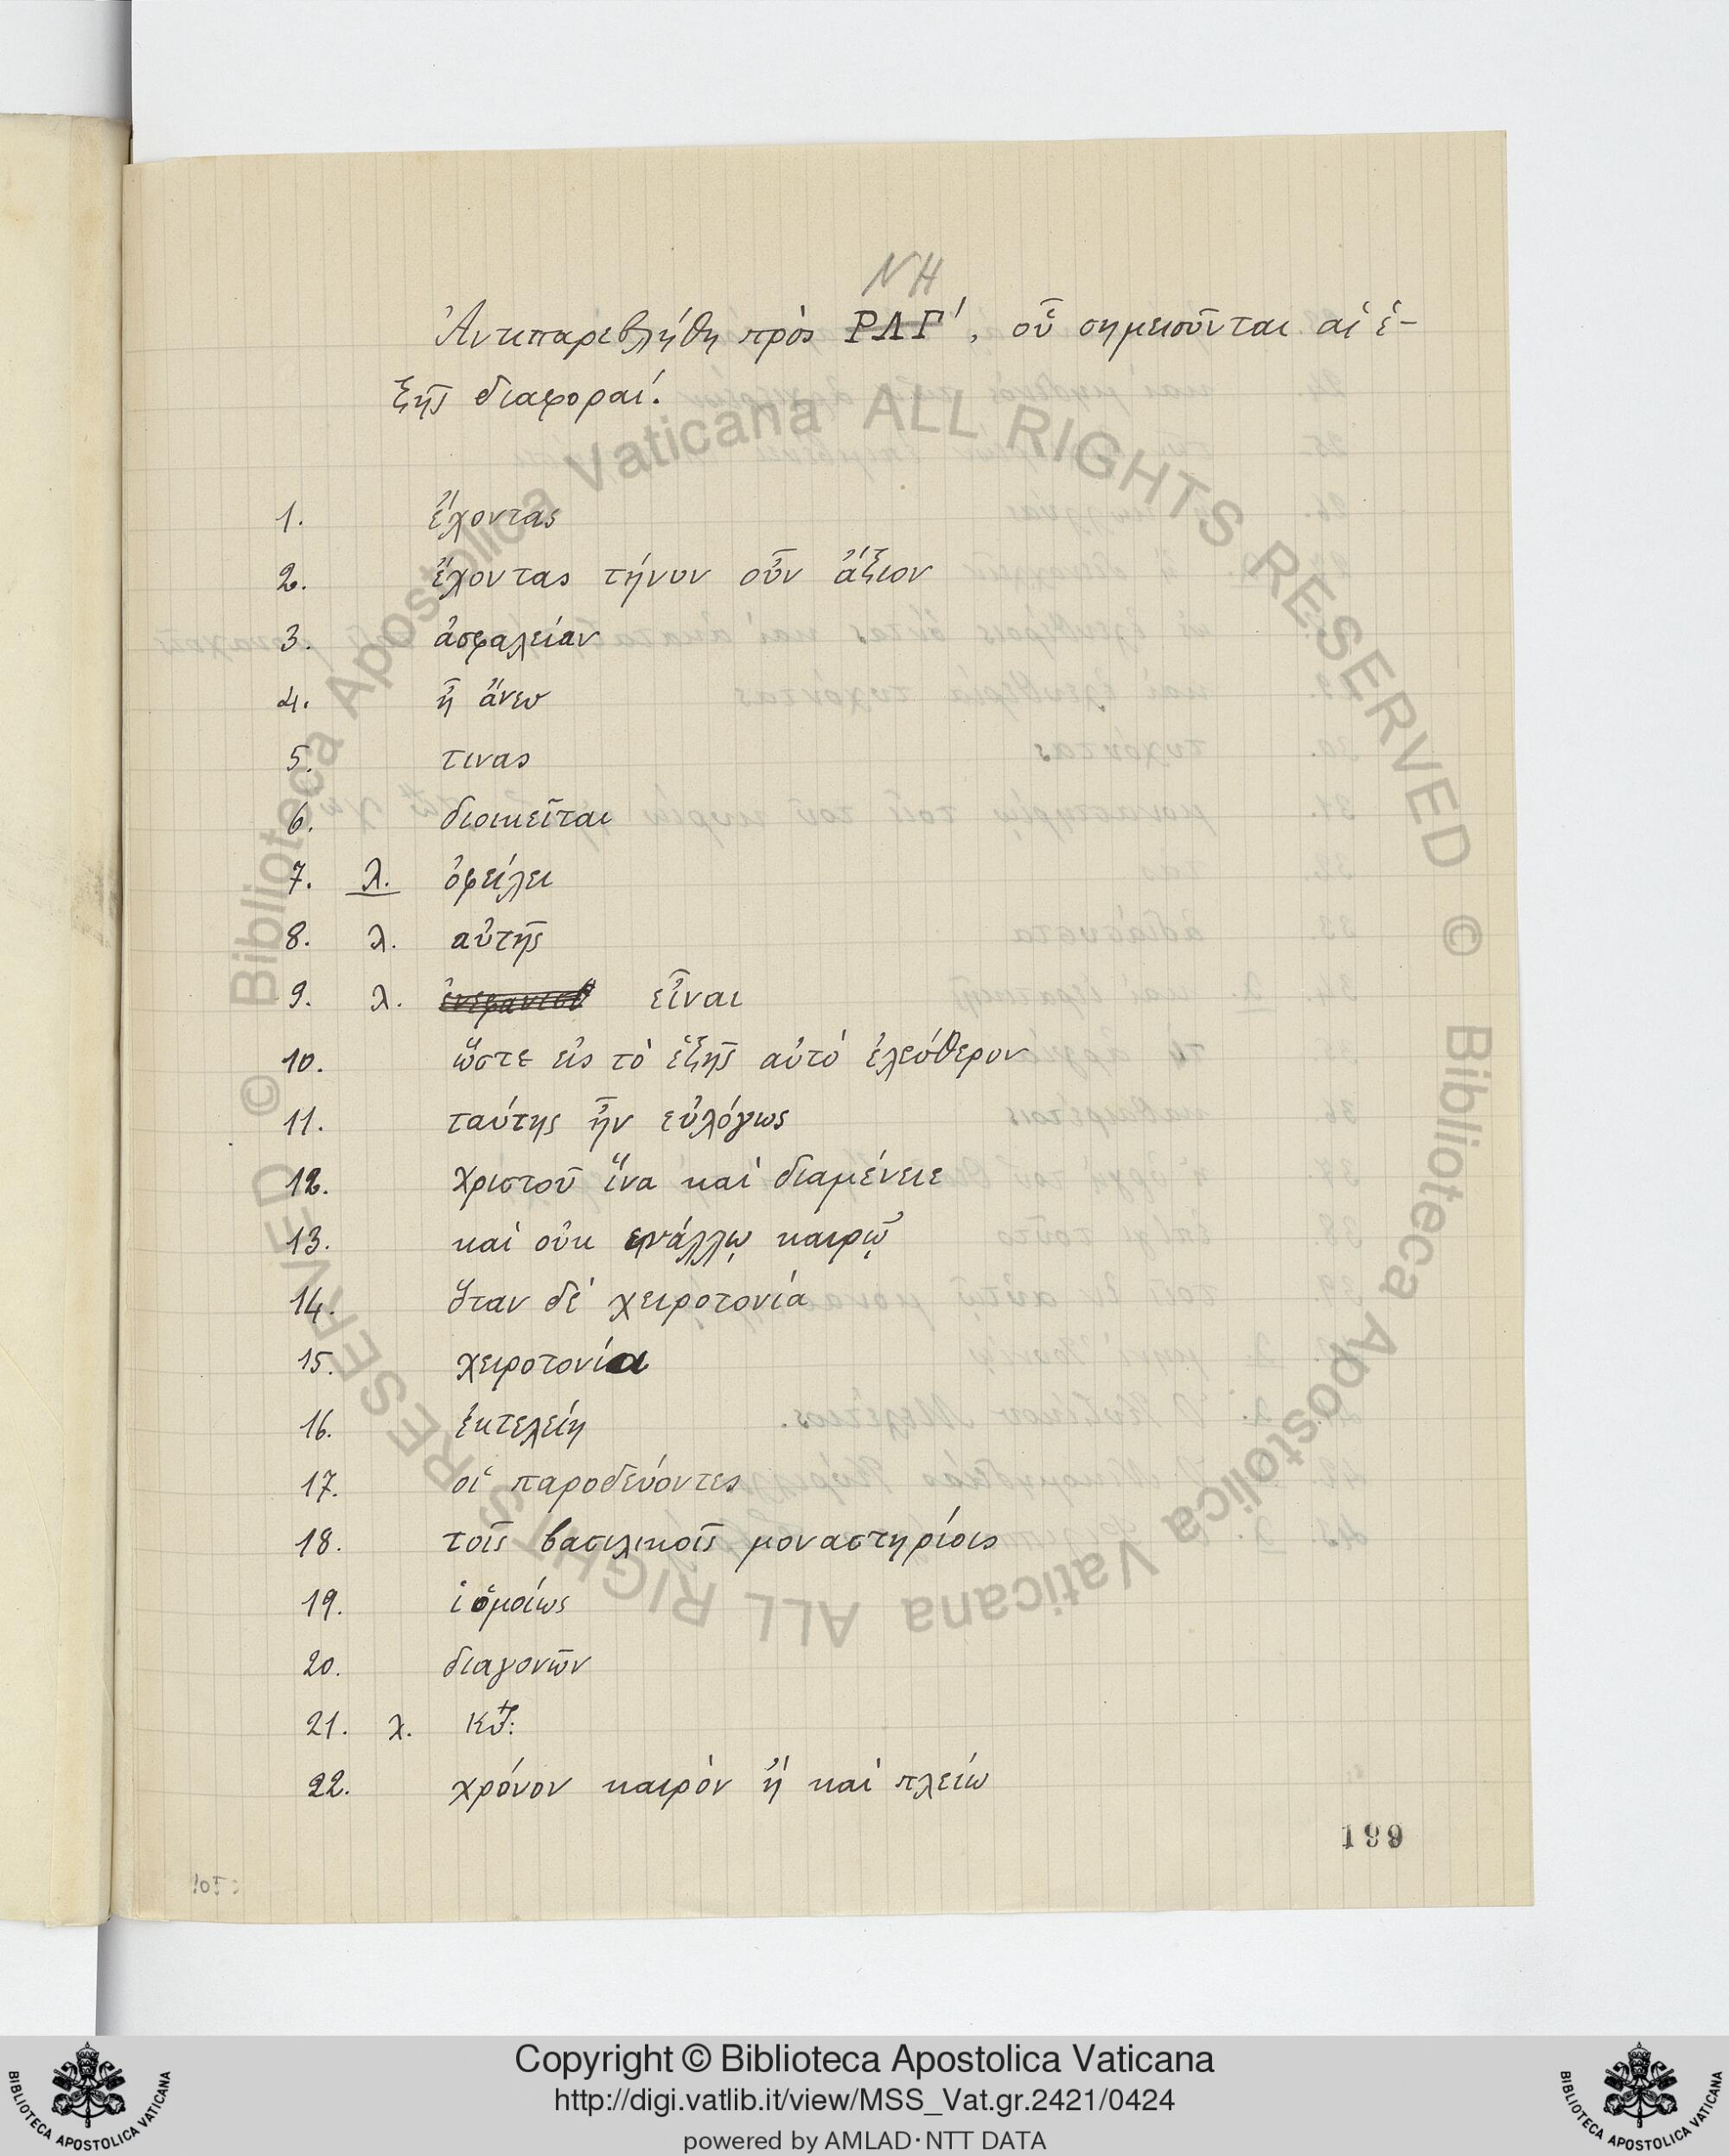 ΝΗ
Ἀντιπαρεβλήθη πρὸς ΡΛΓʹ, οὗ σημειοῦνται αἱ ἑ-
ξῆς διαφοραί.
1. ἔχοντας
2. ἔχοντας τήνυν οὖν ἄξιον
3. ἀσφαλείαν
4. ἢ ἄνευ
5. τινας
6. διοικεῖται
7. λ. ὀφείλει
8. λ. αὐτῆς
9. λ. εἶναι
10. ὥστε εἰς τὸ ἑξῆς αὐτὸ ἐλεύθερον
11. ταύτης ἦν εὐλόγως
12. Χριστοῦ ἵνα καὶ διαμένειε
13. καὶ οὐκ ενάλλῳ καιρῷ
14. ὅταν δὲ χειροτονία
15. χειροτονία
16. ἐκτελείη
17. οἱ παροδεύοντες
18. τοῖς βασιλικοῖς μοναστηρίοις
19. ὁμοίως
20. διαγονῶν
21. λ.
22. χρόνον καιρὸν ἢ καὶ πλείω
199
Copyright © Biblioteca Apostolica Vaticana
http://digi.vatlib.it/view/MSS_Vat.gr.2421/0424
powered by AMLAD·NTT DATA
BIBLIOTECA APOSTOLICA VATICANA
BIBLIOTECA APOSTOLICA VATICANA
© Biblioteca Apostolica Vaticana ALL RIGHTS RESERVED
© Biblioteca Apostolica Vaticana ALL RIGHTS RESERVED